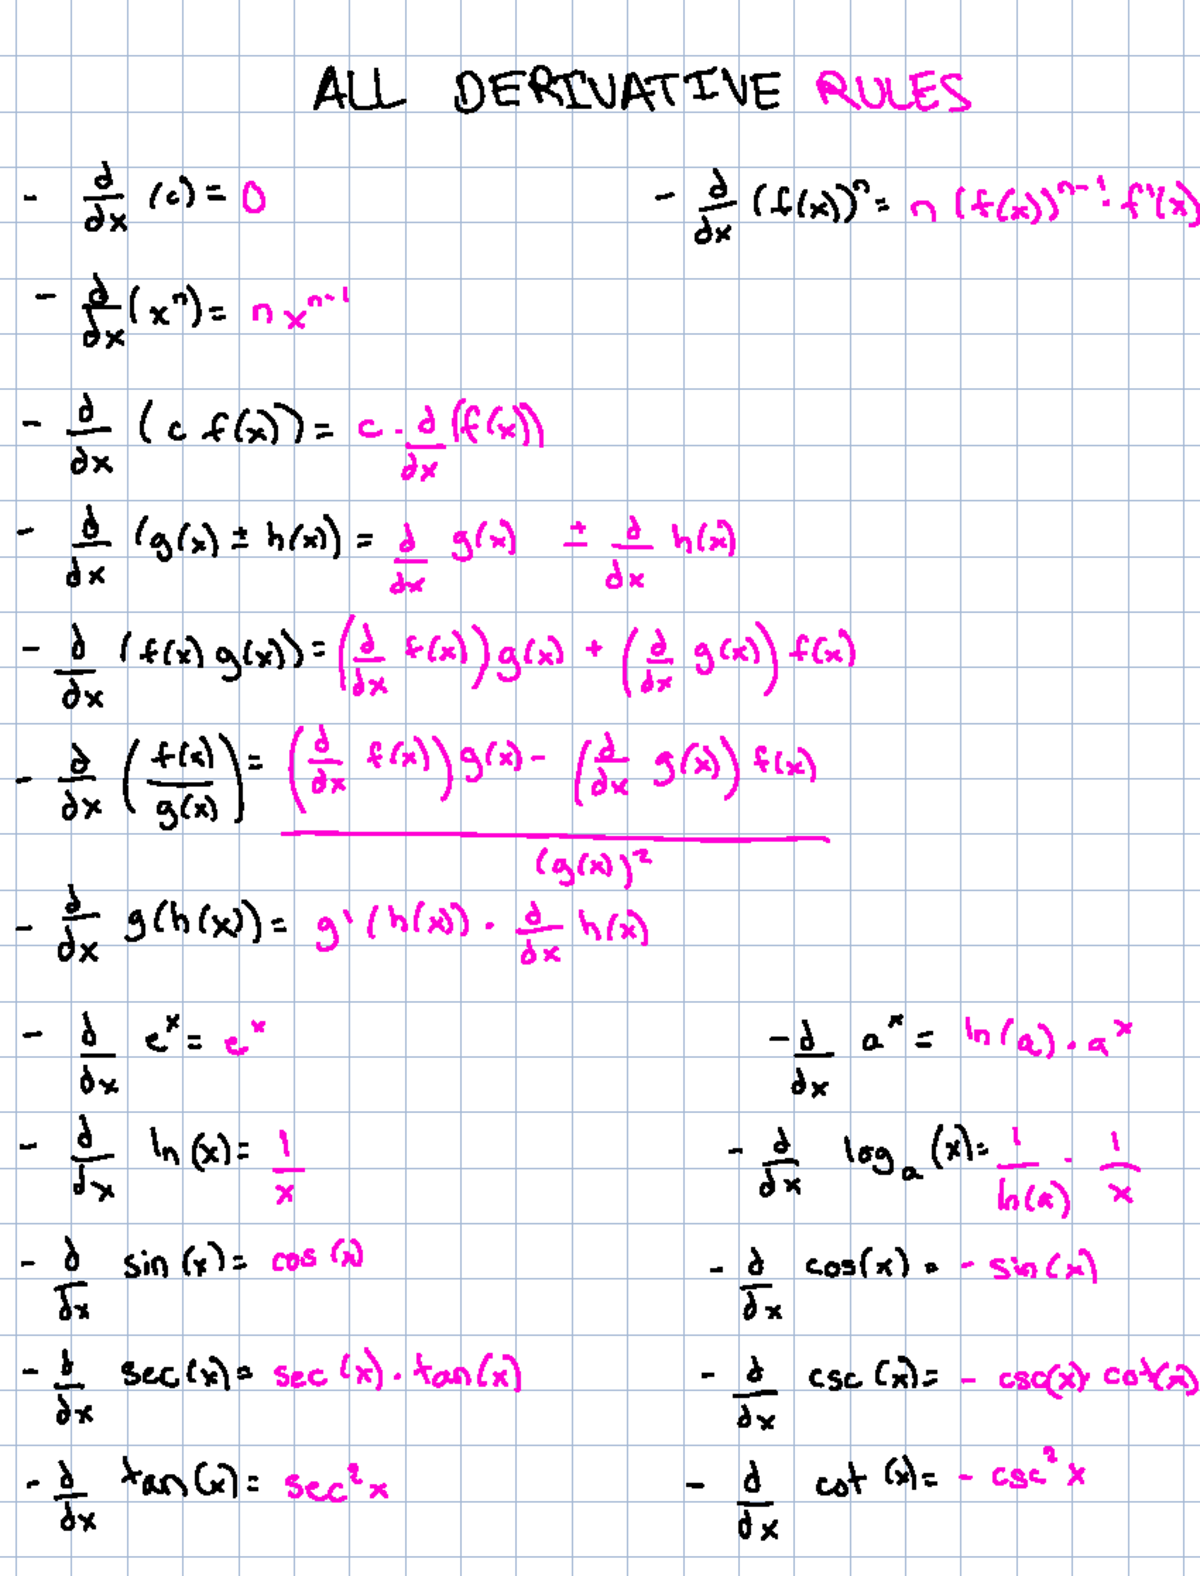 ALL DERIVATIVE RULES
- d/dx (c) = 0
- d/dx (f(x))ⁿ = n (f(x))ⁿ⁻¹ · f'(x)
- d/dx (xⁿ) = n xⁿ⁻¹
- d/dx (c f(x)) = c · d/dx (f(x))
- d/dx (g(x) ± h(x)) = d/dx g(x) ± d/dx h(x)
- d/dx (f(x) g(x)) = (d/dx f(x)) g(x) + (d/dx g(x)) f(x)
- d/dx (f(x)/g(x)) = ((d/dx f(x)) g(x) - (d/dx g(x)) f(x)) / (g(x))²
- d/dx g(h(x)) = g'(h(x)) · d/dx h(x)
- d/dx eˣ = eˣ
- d/dx aˣ = ln(a) · aˣ
- d/dx ln(x) = 1/x
- d/dx logₐ(x) = 1/ln(a) · 1/x
- d/dx sin(x) = cos(x)
- d/dx cos(x) = - sin(x)
- d/dx sec(x) = sec(x) · tan(x)
- d/dx csc(x) = - csc(x) · cot(x)
- d/dx tan(x) = sec²x
- d/dx cot(x) = - csc²x